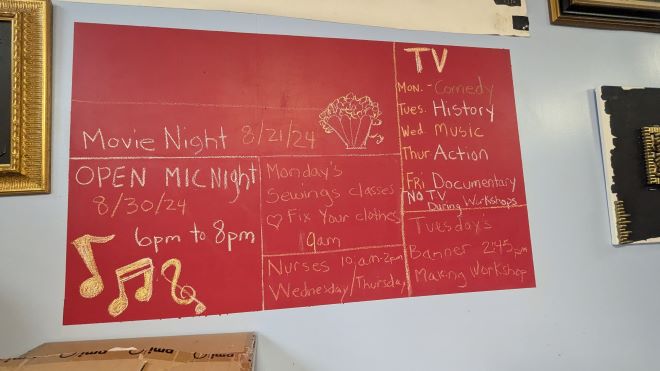 Movie Night 8/21/24
OPEN MIC Night
8/30/24
6pm to 8pm
Monday's
Sewings classes
Fix Your clothes
9am
Nurses 10 am-2pm
Wednesday/Thursday
TV
Mon. - Comedy
Tues. History
Wed Music
Thur Action
Fri Documentary
NO TV
During Workshops
Tuesday's
Banner 2:45pm
Making Workshop